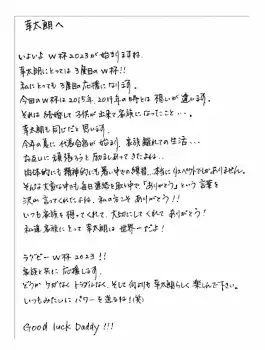 草太朗へ
いよいよW杯2023が始まりますね
草太朗にとっては3度目のW杯!!
私にとっても3度目の応援になります。
今回のW杯は2015年、2019年の時とは想いが違います。
それは結婚して子供が出来て家族になったこと…。
草太朗も同じだと思います。
今年の夏に代表合宿が始まり、家族離れての生活…
お互いに頑張ろうと励ましあってきたよね…
肉体的にも精神的にも暑い中での練習…本当にリスペクトでしかありません。
そんな大変な中でも毎日連絡を取い中で「ありがとう」という言葉を
沢山言ってくれたよね。私の方こそありがとう!!
いつも家族を想ってくれて、大切にしてくれてありがとう!
私達家族にとって草太朗は世界一だよ!
ラグビーW杯2023!!
家族と共に応援します。
どうかケガなくトラブルなく、そして何よりも草太朗らしく楽しんで下さい。
いつもみたいにパワーを送るね!(笑)
Good luck Daddy!!!